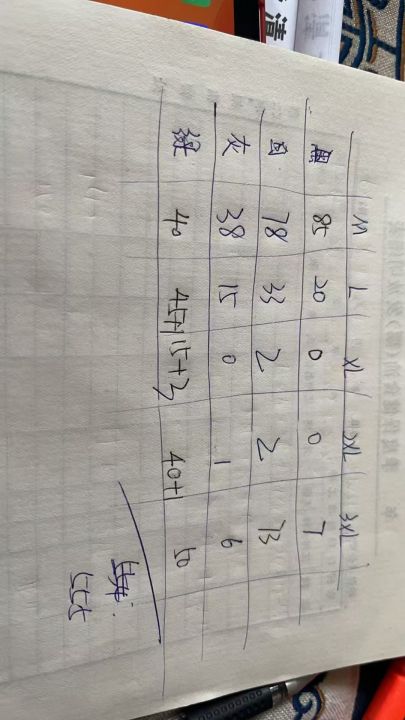 M L XL XXL 3XL
黑 85 20 0 0 7
白 78 33 2 2 73
灰 38 15 0 1 6
绿 40 45+1 15+3 40+1 50
555